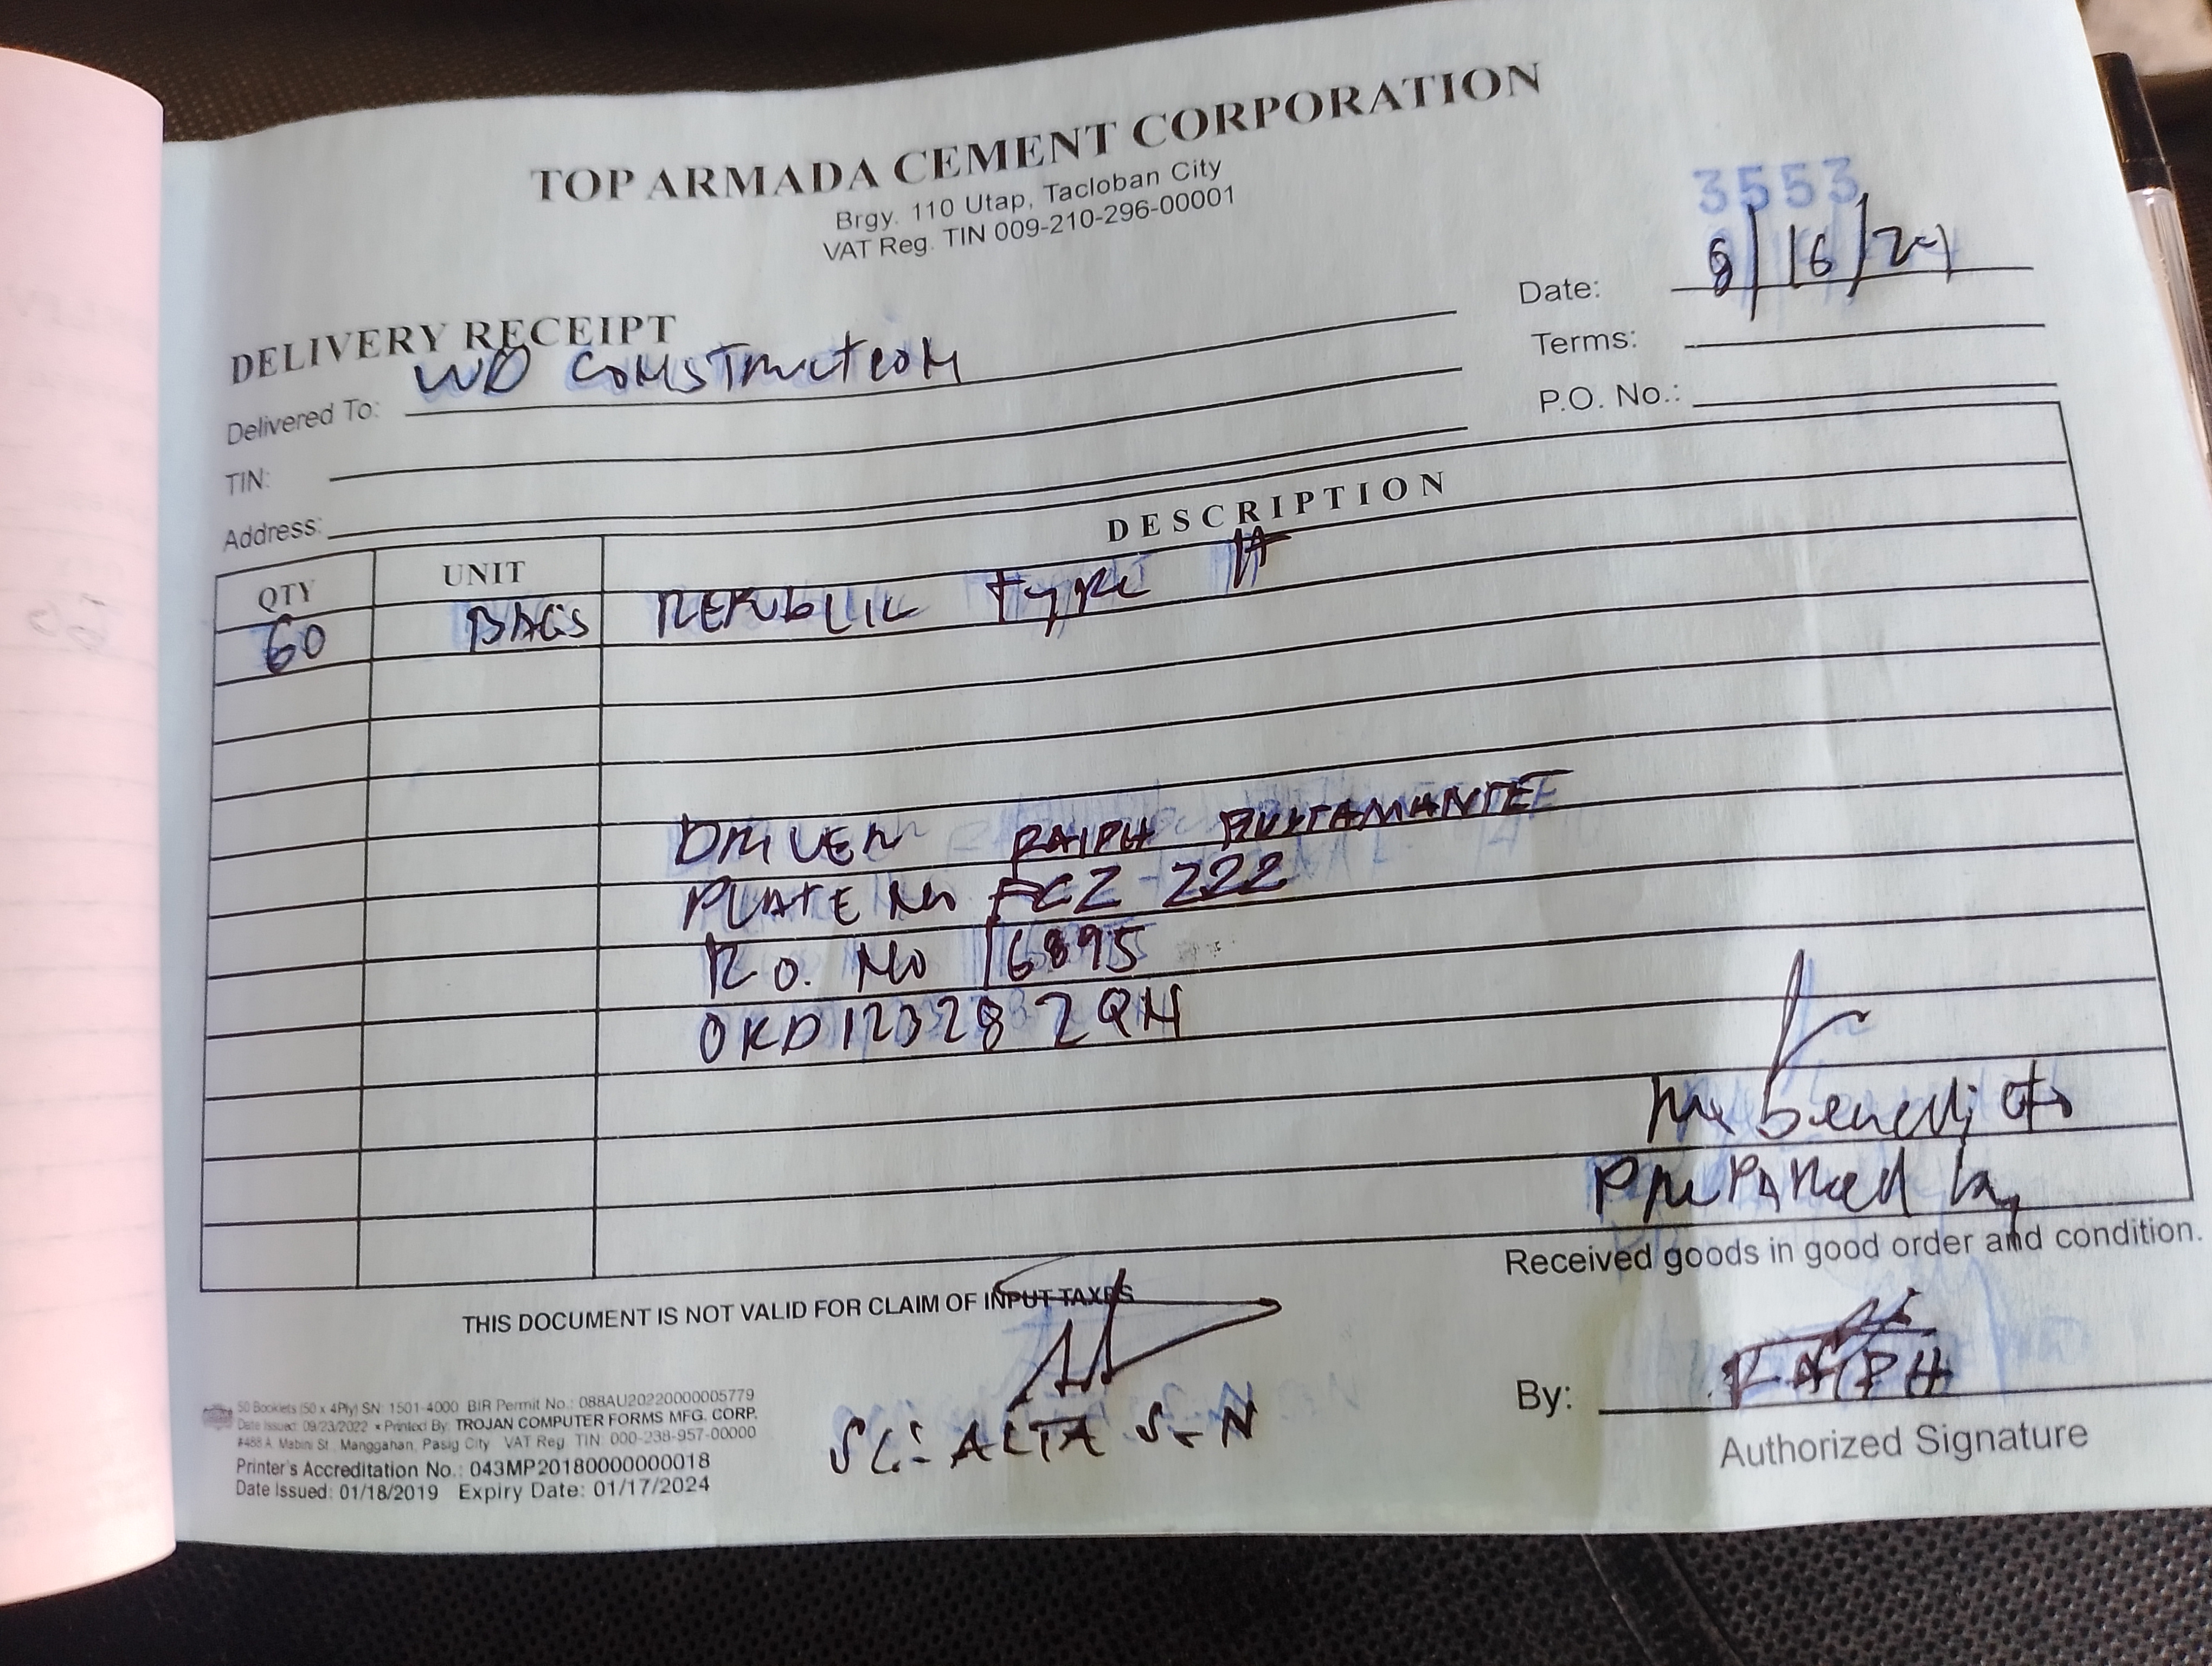 TOP ARMADA CEMENT CORPORATION
Brgy. 110 Utap, Tacloban City
VAT Reg. TIN 009-210-296-00001
3553
DELIVERY RECEIPT
Date: 8/16/24
Delivered To: WD CONSTRUCTION
Terms:
TIN:
P.O. No.:
Address:
QTY UNIT DESCRIPTION
60 BAGS REPUBLIC Type
DRIVER RALPH BUSTAMANTE
PLATE No FCZ-222
R.O. No 16895
OKD12328 ZQN
Benedicto
Prepared by
Received goods in good order and condition.
THIS DOCUMENT IS NOT VALID FOR CLAIM OF INPUT TAXES
By: RALPH
Authorized Signature
50 Booklets (50 x 4Ply) SN: 1501-4000 BIR Permit No.: 088AU20220000005779
Date Issued: 09/23/2022 • Printed By: TROJAN COMPUTER FORMS MFG. CORP.
#488 A. Mabini St., Manggahan, Pasig City VAT Reg. TIN: 000-238-957-00000
Printer's Accreditation No.: 043MP20180000000018
Date Issued: 01/18/2019 Expiry Date: 01/17/2024